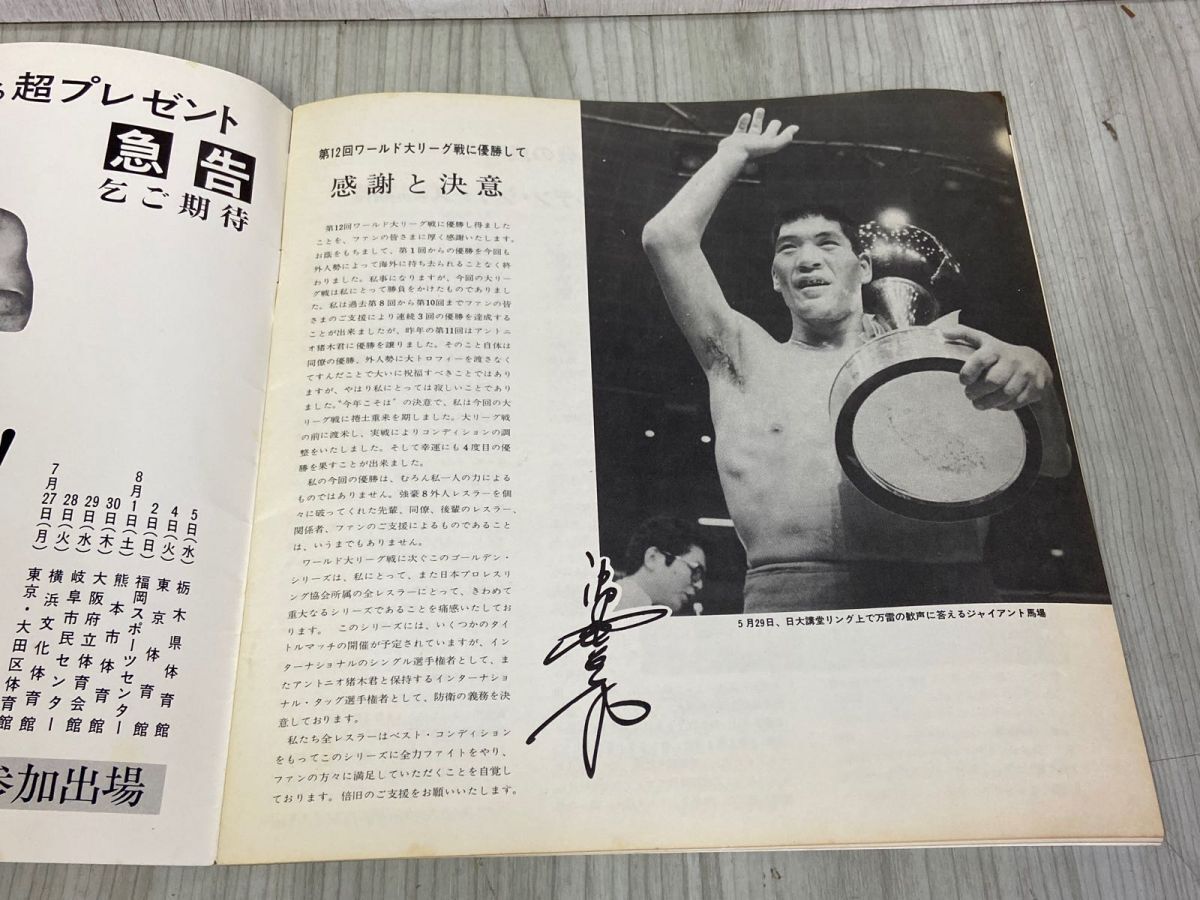 超プレゼント
急告
乞ご期待
5日(水) 栃木県体育館
4日(火) 東京体育館
2日(日) 福岡スポーツセンター
8月1日(土) 熊本市体育館
30日(木) 大阪府立体育会館
29日(水) 岐阜市民センター
28日(火) 横浜文化体育館
7月27日(月) 東京・大田区体育館
参加出場
第12回ワールド大リーグ戦に優勝して
感謝と決意
第12回ワールド大リーグ戦に優勝し得ました
ことを、ファンの皆さまに厚く感謝いたします。
お蔭をもちまして、第1回からの優勝を今回も
外人勢によって海外に持ち去られることなく終
わりました。私事になりますが、今回の大リー
グ戦は私にとって勝負をかけたものでありまし
た。私は過去第8回から第10回までファンの皆
さまのご支援により連続3回の優勝を達成する
ことが出来ましたが、昨年の第11回はアントニ
オ猪木君に優勝を譲りました。そのこと自体は
同僚の優勝、外人勢に大トロフィーを渡さなく
てすんだことで大いに祝福すべきことではあり
ますが、やはり私にとっては寂しいことであり
ました。"今年こそは"の決意で、私は今回の大
リーグ戦に捲土重来を期しました。大リーグ戦
の前に渡米し、実戦によりコンディションの調
整をいたしました。そして幸運にも4度目の優
勝を果すことが出来ました。
私の今回の優勝は、むろん私一人の力による
ものではありません。強豪8外人レスラーを個
々に破ってくれた先輩、同僚、後輩のレスラー、
関係者、ファンのご支援によるものであること
は、いうまでもありません。
ワールド大リーグ戦に次ぐこのゴールデン・
シリーズは、私にとって、また日本プロレスリ
ング協会所属の全レスラーにとって、きわめて
重大なるシリーズであることを痛感いたしてお
ります。 このシリーズには、いくつかのタイ
トルマッチの開催が予定されていますが、イン
ターナショナルのシングル選手権者として、ま
たアントニオ猪木君と保持するインターナショ
ナル・タッグ選手権者として、防衛の義務を決
意しております。
私たち全レスラーはベスト・コンディション
をもってこのシリーズに全力ファイトをやり、
ファンの方々に満足していただくことを自覚し
ております。倍旧のご支援をお願いいたします。
5月29日、日大講堂リング上で万雷の歓声に答えるジャイアント馬場